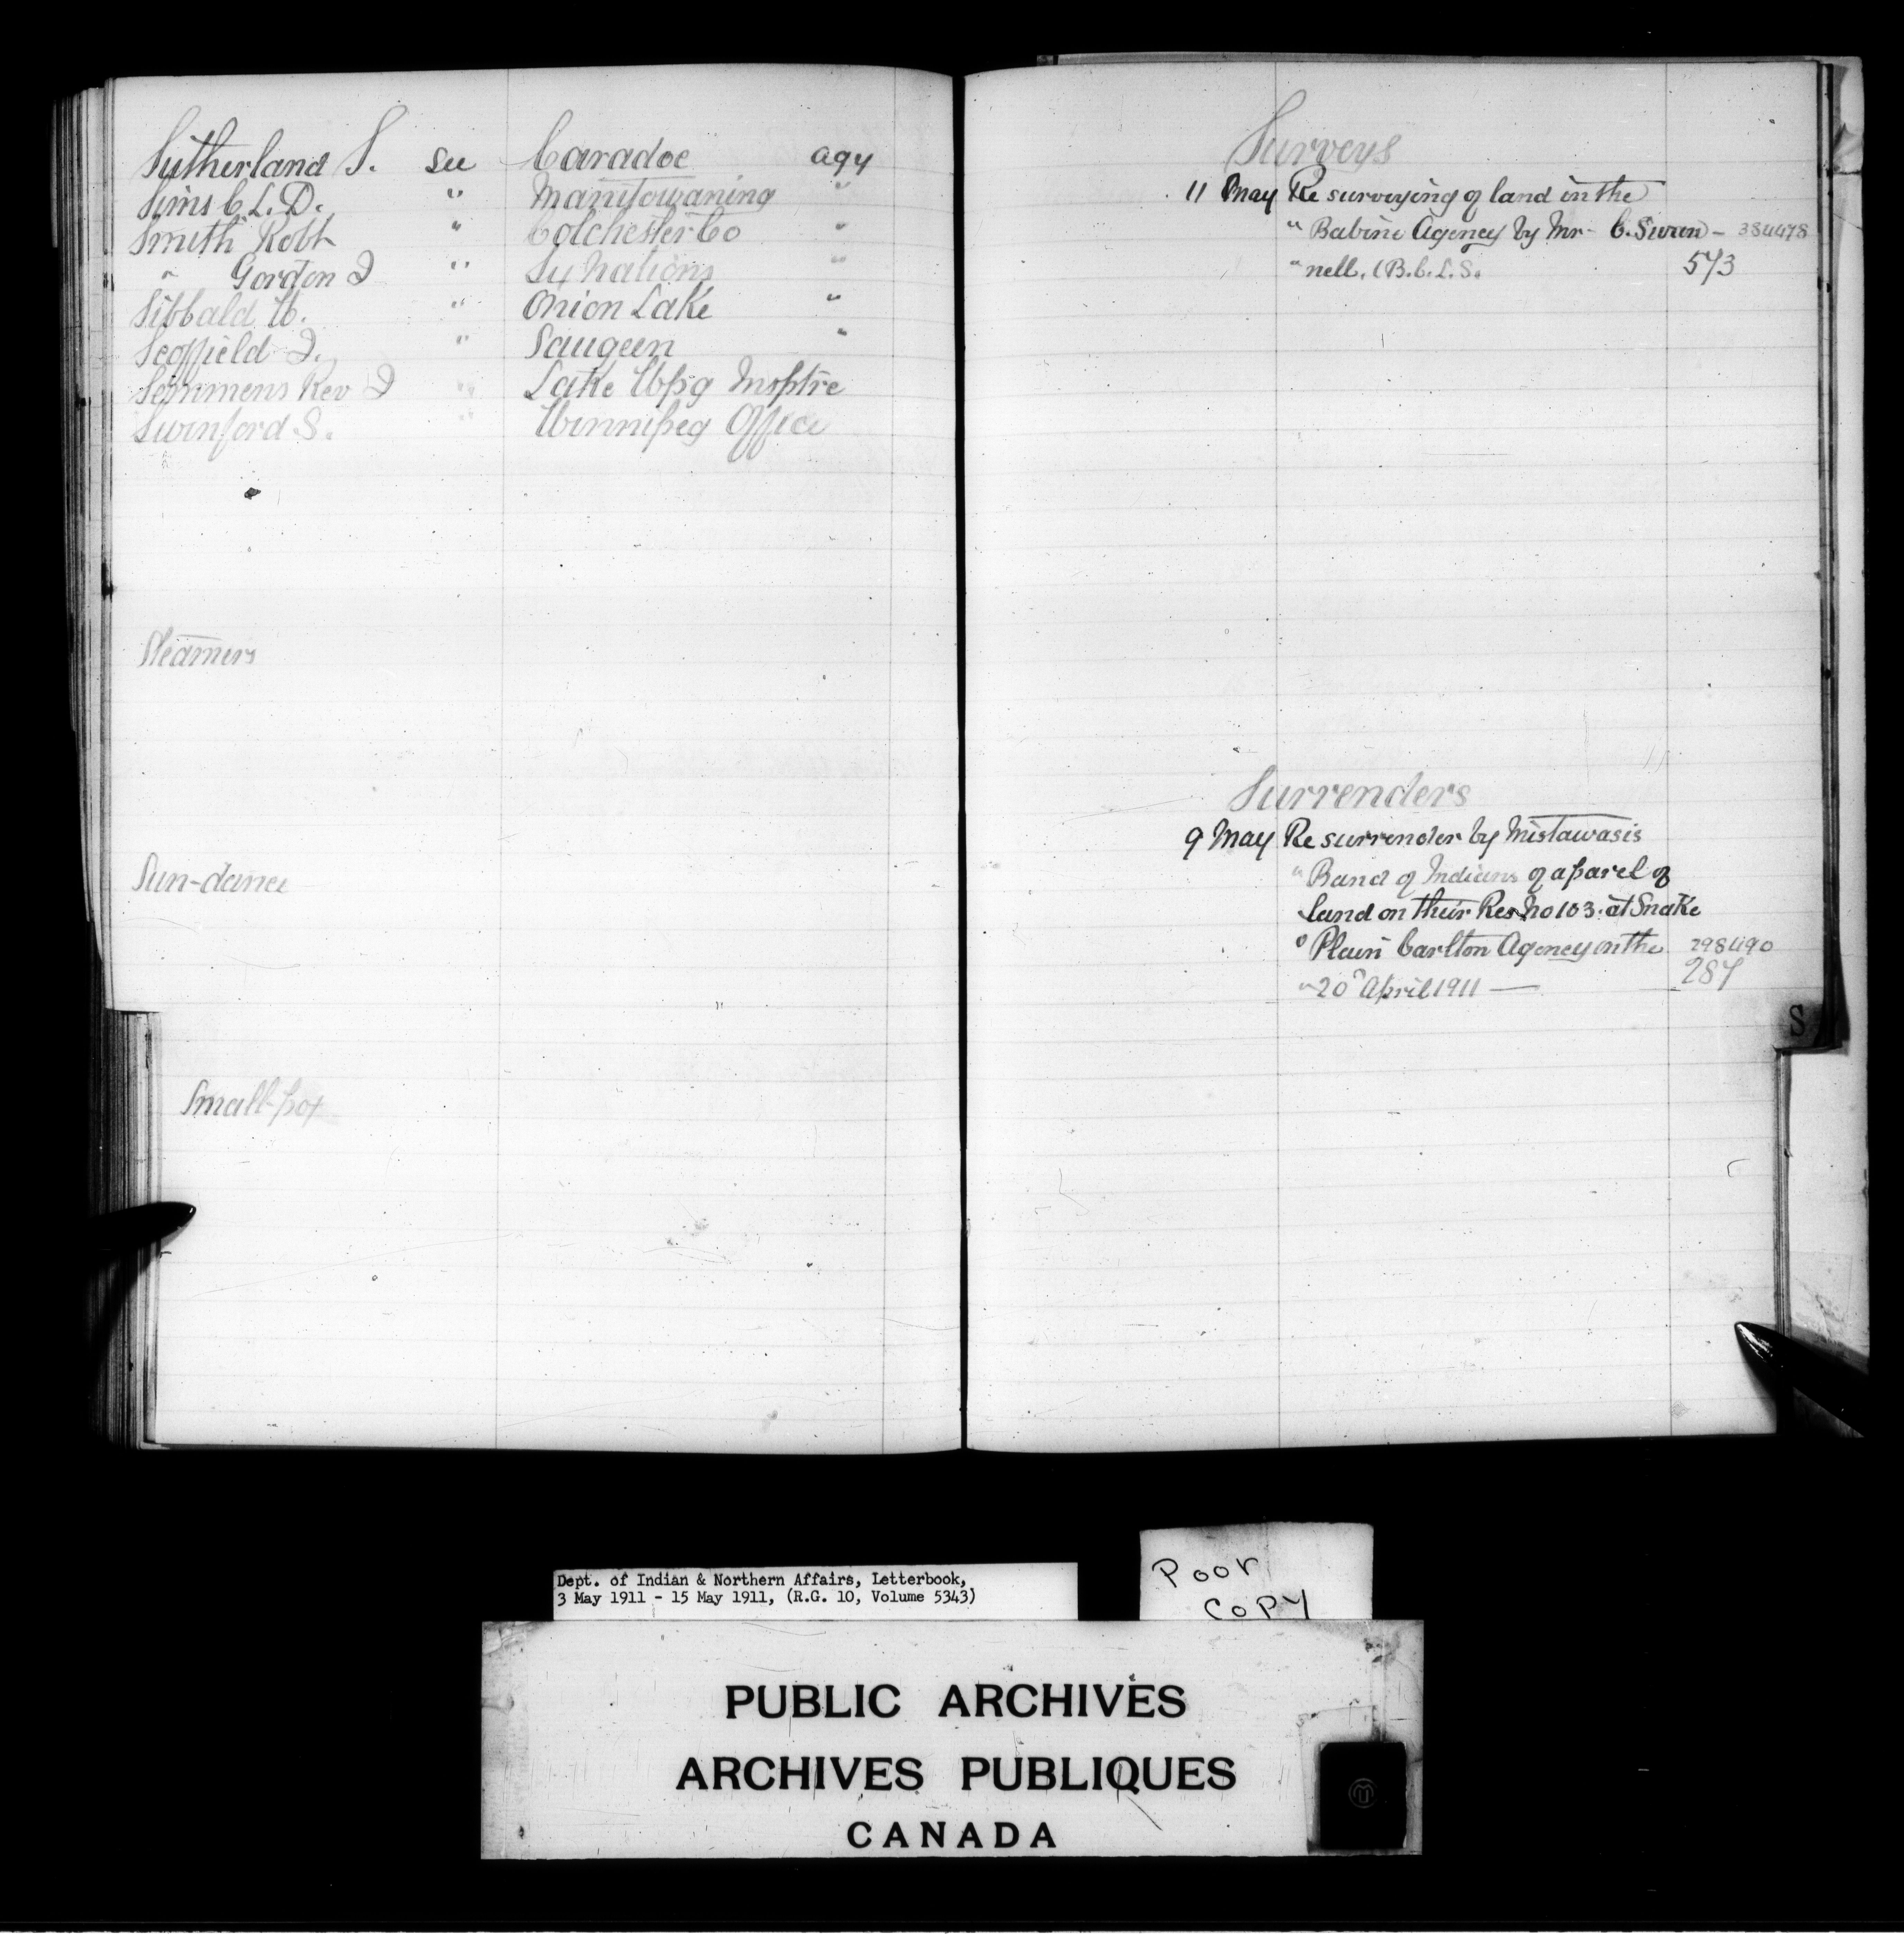 Sutherland S. see Caradoc agy
Sims C. L. D. " Manitowaning "
Smith Robt " Colchester Co "
" Gordon J " Six Nations "
Sibbald W. " Onion Lake "
Scoffield J. " Saugeen "
Semmens Rev J " Lake Wpg Insptre
Swinford S. " Winnipeg Office
Steamers
Sun-dance
Small-pox
Surveys
11 May Re surveying of land in the
" Babine Agency by Mr - C. Swan - 384478
" nell, (B.C.L.S. 573
Surrenders
9 May Re surrender by Mistawasis
" Band of Indians of a parcel of
land on their Res No 103. at Snake
" Plain Carlton Agency on the 298490
" 20 April 1911 — 287
S
Dept. of Indian & Northern Affairs, Letterbook,
3 May 1911 - 15 May 1911, (R.G. 10, Volume 5343)
Poor
Copy
PUBLIC ARCHIVES
ARCHIVES PUBLIQUES
CANADA